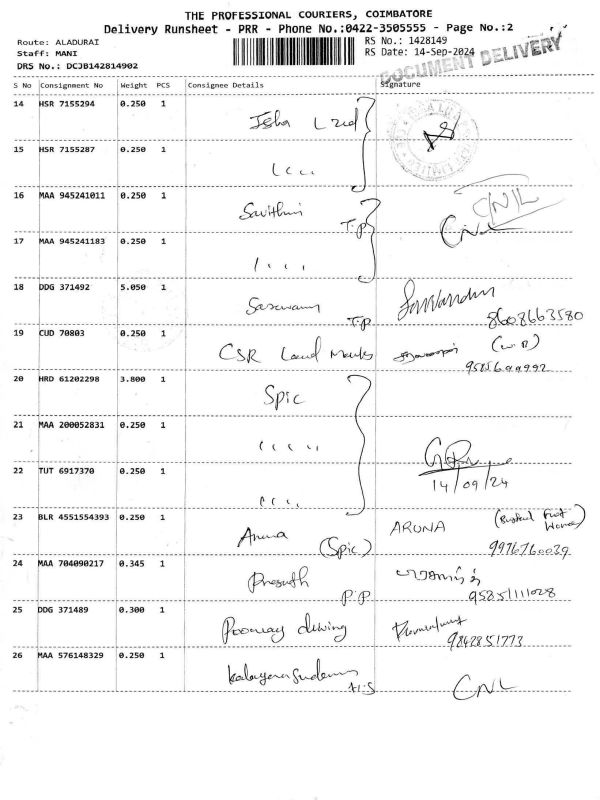 THE PROFESSIONAL COURIERS, COIMBATORE
Delivery Runsheet - PRR - Phone No.:0422-3505555 - Page No.:2
Route: ALADURAI
RS No.: 1428149
Staff: MANI
RS Date: 14-Sep-2024
DRS No.: DCJB142814902
DOCUMENT DELIVERY
S No Consignment No Weight PCS Consignee Details Signature
14 HSR 7155294 0.250 1 Isha
15 HSR 7155287 0.250 1
16 MAA 945241011 0.250 1 Savithri T.P
CNL
17 MAA 945241183 0.250 1
18 DDG 371492 5.050 1 T.P
8608663580
19 CUD 70803 0.250 1 CSR Land Marks
20 HRD 61202298 3.800 1 Spic
21 MAA 200052831 0.250 1
22 TUT 6917370 0.250 1
14/09/24
23 BLR 4551554393 0.250 1 Aruna (Spic) ARUNA
9976760039
24 MAA 704090217 0.345 1 P.P
25 DDG 371489 0.300 1
9842851773
26 MAA 576148329 0.250 1 CNL